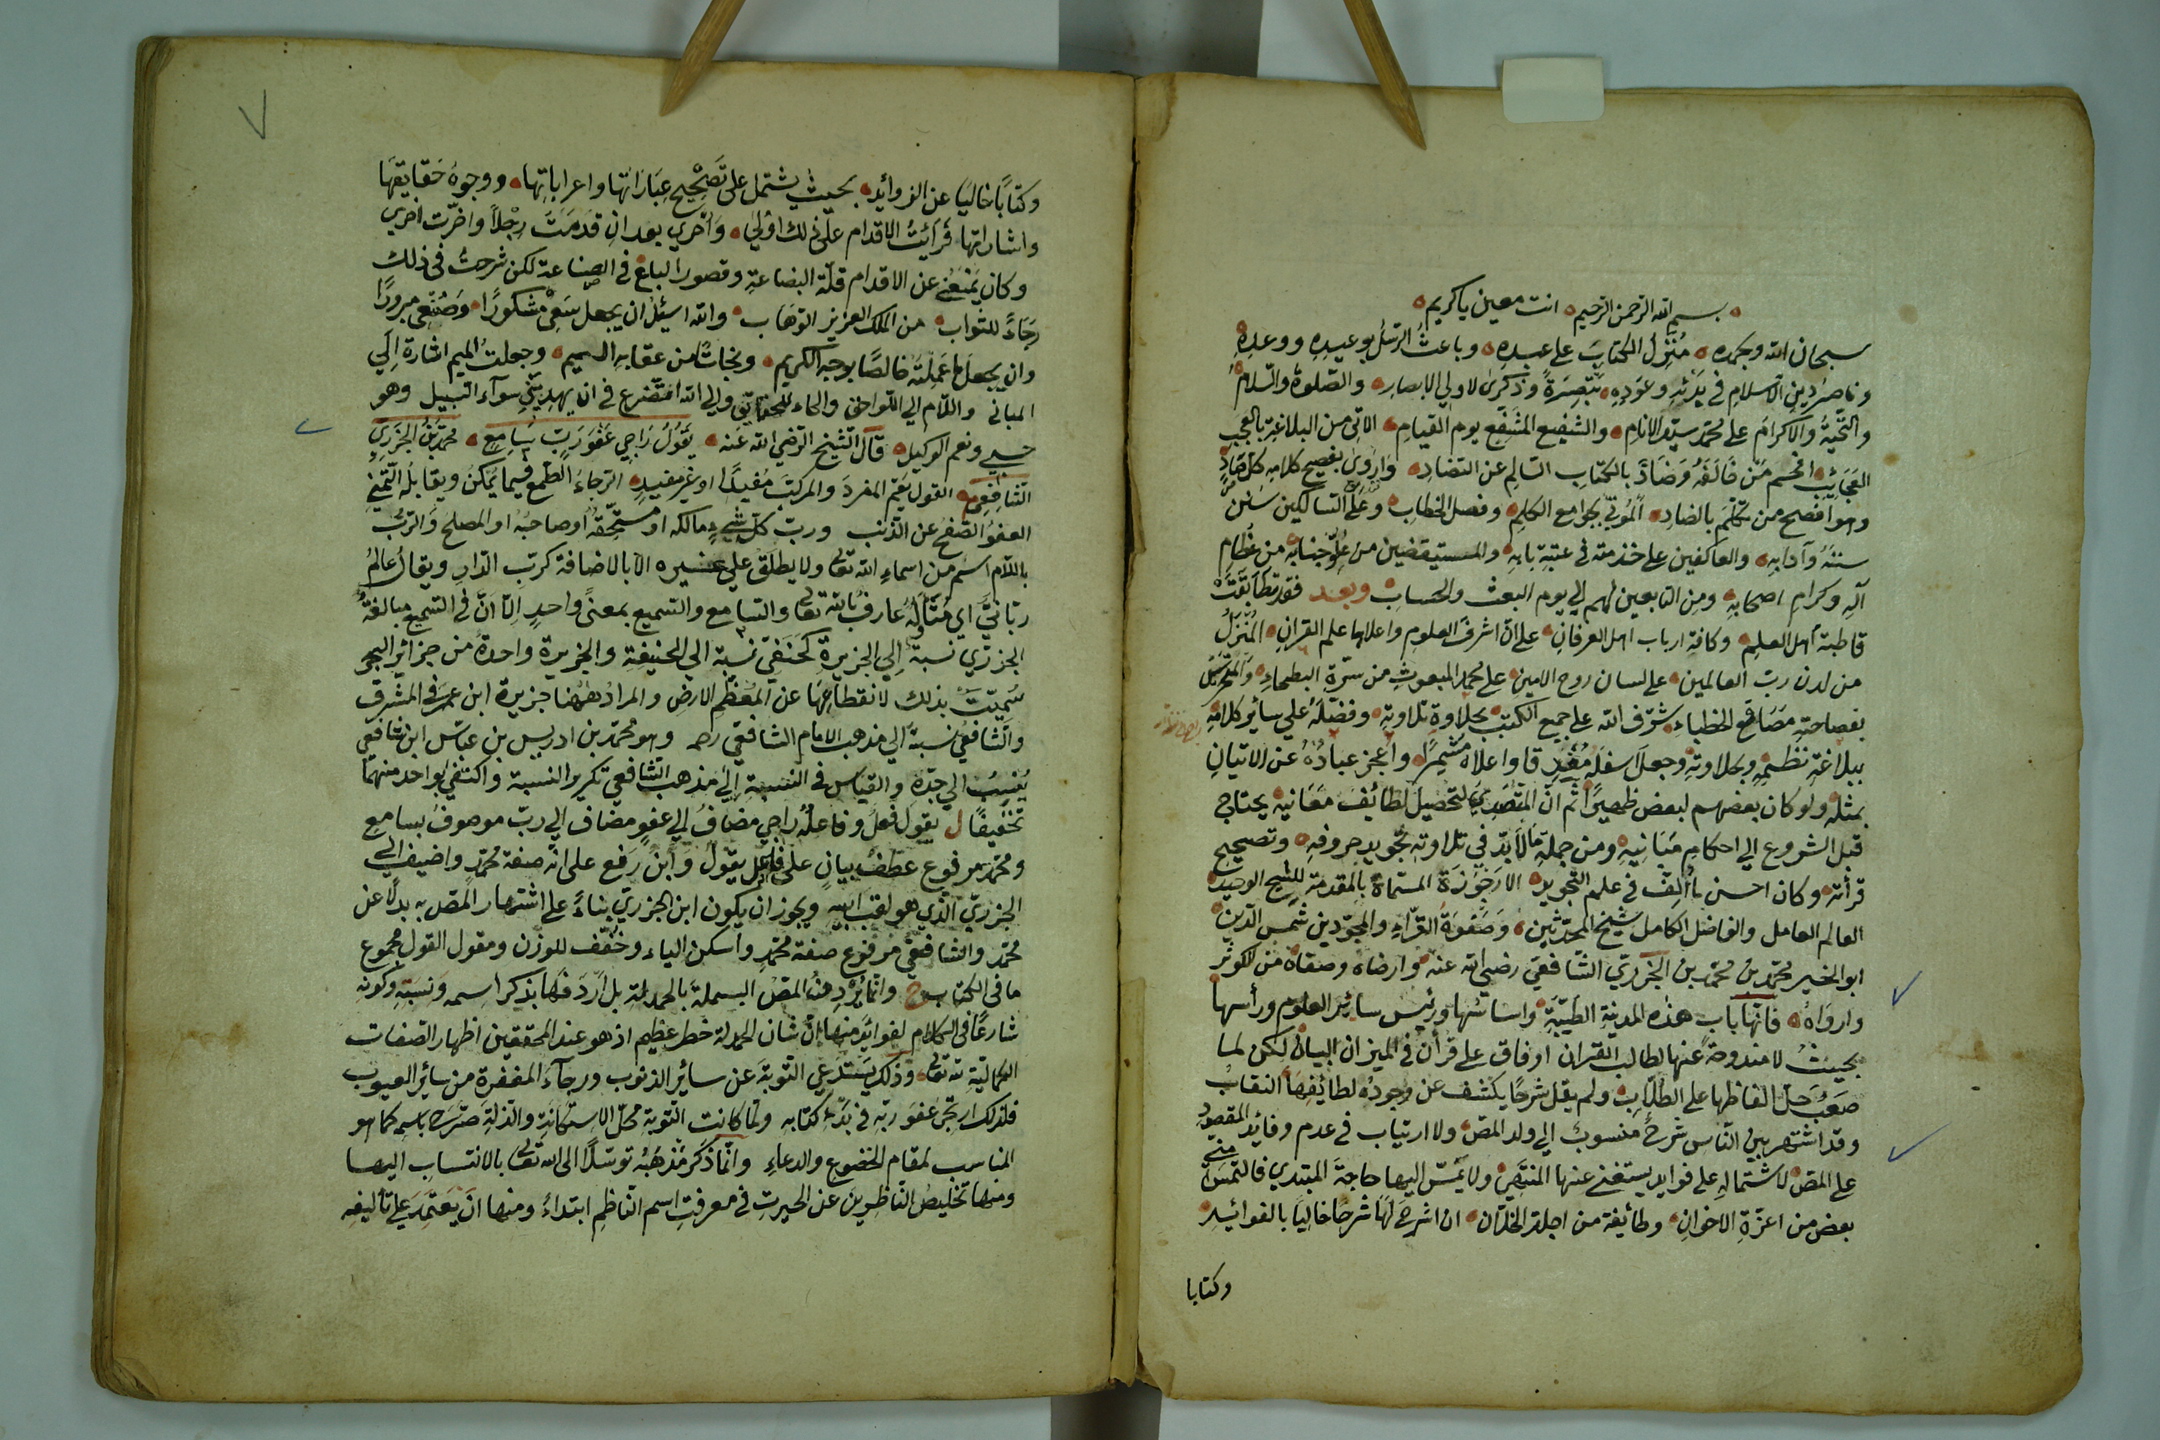 بسم الله الرحمن الرحيم انت معين ياكريم
سبحان الله وبحمده منزل الكتاب على عبده وباعث الرسل بوعيده ووعده
وناصر دين الاسلام في بدئه وعوده تبصرة وذكرى لاولي الابصار والصلوة والسلام
والتحية والاكرام على محمد سيد الانام والشفيع المشفع يوم القيام الاتى من البلاغة بالعجب
العجائب افحم من خالفه وضاد بالكتاب السالم عن التضاد واروى بفصيح كلامه كل صاد
وهو افصح من تكلم بالضاد المؤتى بجوامع الكلم وفصل الخطاب وعلى السالكين سنن
سننه وآدابه والعاكفين على خدمته في عتبة بابه والمستفيضين من علو جنابه من عظام
آله وكرام اصحابه ومن التابعين لهم الي يوم البعث والحساب وبعد فقد تطابقت
قاطبة اهل العلم وكافة ارباب اهل العرفان على ان اشرف العلوم واعلاها علم القران المنزل
من لدن رب العالمين على لسان روح الامين على محمد المبعوث من سرة البطحاء
بفصاحته مصاقع الخطباء شرف الله على جميع الكتب بحلاوة تلاوته وفضله على سائر كلامه
ببلاغة نظمه وبحلاوته وجعل اسفله مغدقا واعلاه مثمرا واعجز عباده عن الاتيان
بمثله ولو كان بعضهم لبعض ظهيرا ثم ان المتصدي لتحصيل لطائف معانيه يحتاج
قبل الشروع الي احكام مبانيه ومن جملة ما لابد في تلاوته تجويد حروفه وتصحيح
قرأته وكان احسن ما ألف في علم التجويد الارجوزة المسماة بالمقدمة للشيخ الوحيد
العالم العامل والفاضل الكامل شيخ المحدثين وصفوة القراء والمجودين شمس الدين
ابو الخير محمد بن محمد بن الجزري الشافعي رضي الله عنه وارضاه وصفاه من الكوثر
وارواه فانها باب هذه المدينة الطيبة واساسها ورئيس سائر العلوم ورأسها
بحيث لا مندوحة عنها لطالب القران اوفاق على قرأن في الميزان البيان لكن لما
صعب حل الفاظها على الطلاب ولم يقل شرحا يكشف عن وجوده لطائفها النقاب
وقد اشتهر بين الناس شرح منسوب الي ولد المص ولا ارتياب في عدم وفائه المقصود
على المص لاشتماله على فوايد يستغني عنها المنتهي ولا يمس اليها حاجة المبتدي فالتمس مني
بعض من اعزة الاخوان وطائفة من اجلة الخلان ان اشرح لها شرحا خاليا بالفوائد
وكتابا
وكتابا خاليا عن الزوائد بحيث يشتمل على تصحيح عباراتها واعراباتها ووجوه حقايقها
واشاراتها فرأيت الاقدام على ذلك اولى واحرى بعد ان قدمت رجلا واخرت اخرى
وكان يمنعني عن الاقدام قلة البضاعة وقصور الباغ في الصناعة لكن شرحت في ذلك
رجاء للثواب من الملك العزيز الوهاب والله اسئل ان يجعل سعي مشكورا وصنعي مبرورا
وان يجعل ما عملته خالصا بوجهه الكريم ونجاتا من عقابه الميم وجعلت الميم اشارة الي
المباني واللام الي اللواحق والحاء للحقايق والي الله اتضرع في ان يهديني سوآء السبيل وهو
حسبي ونعم الوكيل قال الشيخ الرضي الله عنه يقول راجي عفو رب سامع محمد بن الجزري
الشافعي م القول يعم المفرد والمركب مفيدا او غير مفيد الرجاء الطمع فيما يمكن ويقابله التمني
العفو الصفح عن الذنب ورب كل شيء مالكه او مستحقه او صاحبه او المصلح والرب
باللام اسم من اسماء الله تعالى ولا يطلق على غيره الا بالاضافة كرب الدار ويقال عالم
رباني اي متأله عارف بالله تعالى والسامع والسميع بمعنى واحد الا ان في السميع مبالغة
الجزري نسبة الي الجزيرة كحنفي نسبة الي الحنيفة والجزيرة واحدة من جزائر البحر
سميت بذلك لانقطاعها عن المعظم الارض والمراد ههنا جزيرة ابن عمر في المشرق
والشافعي نسبة الي مذهب الامام الشافعي رحمه وهو محمد بن ادريس بن عباس ابن شافعي
ينسب الي جده والقياس في النسبة الي مذهب الشافعي تكرير النسبة واكتفي بواحد منهما
تخفيفا ل يقول فعل وفاعله راجي مضاف الي عفو مضاف الي رب موصوف بسامع
ومحمد مرفوع عطف بيان على فاعل يقول وابن رفع على انه صفة محمد واضيف الي
الجزري الذي هو لقب ابيه ويجوز ان يكون ابن الجزري بناء على اشتهار المص به بدلا عن
محمد والشافعي مرفوع صفة محمد واسكن الياء وخفف للوزن ومقول القول مجموع
ما في الكتاب ح وانما لم يردف المص البسملة بالحمدلة بل اردفها بذكر اسمه ونسبته وكونه
شارعا في الكلام لفوائد منها ان شان الحمدلة خطر عظيم اذ هو عند المحققين اظهار الصفات
الكمالية لله تعالى وذلك يستدعي التوبة عن سائر الذنوب ورجآء المغفرة من سائر العيوب
فلذلك ارتجى عفو ربه في بدء كتابه ولما كانت التوبة محل الاستكانة والذلة صرح باسمه كما هو
المناسب لمقام الخضوع والدعاء وانما ذكر مذهبه توسلا الى الله تعالى بالانتساب اليها
ومنها تخليص الناظرين عن الحيرت في معرفت اسم الناظم ابتداء ومنها ان يعتمد على تأليفه